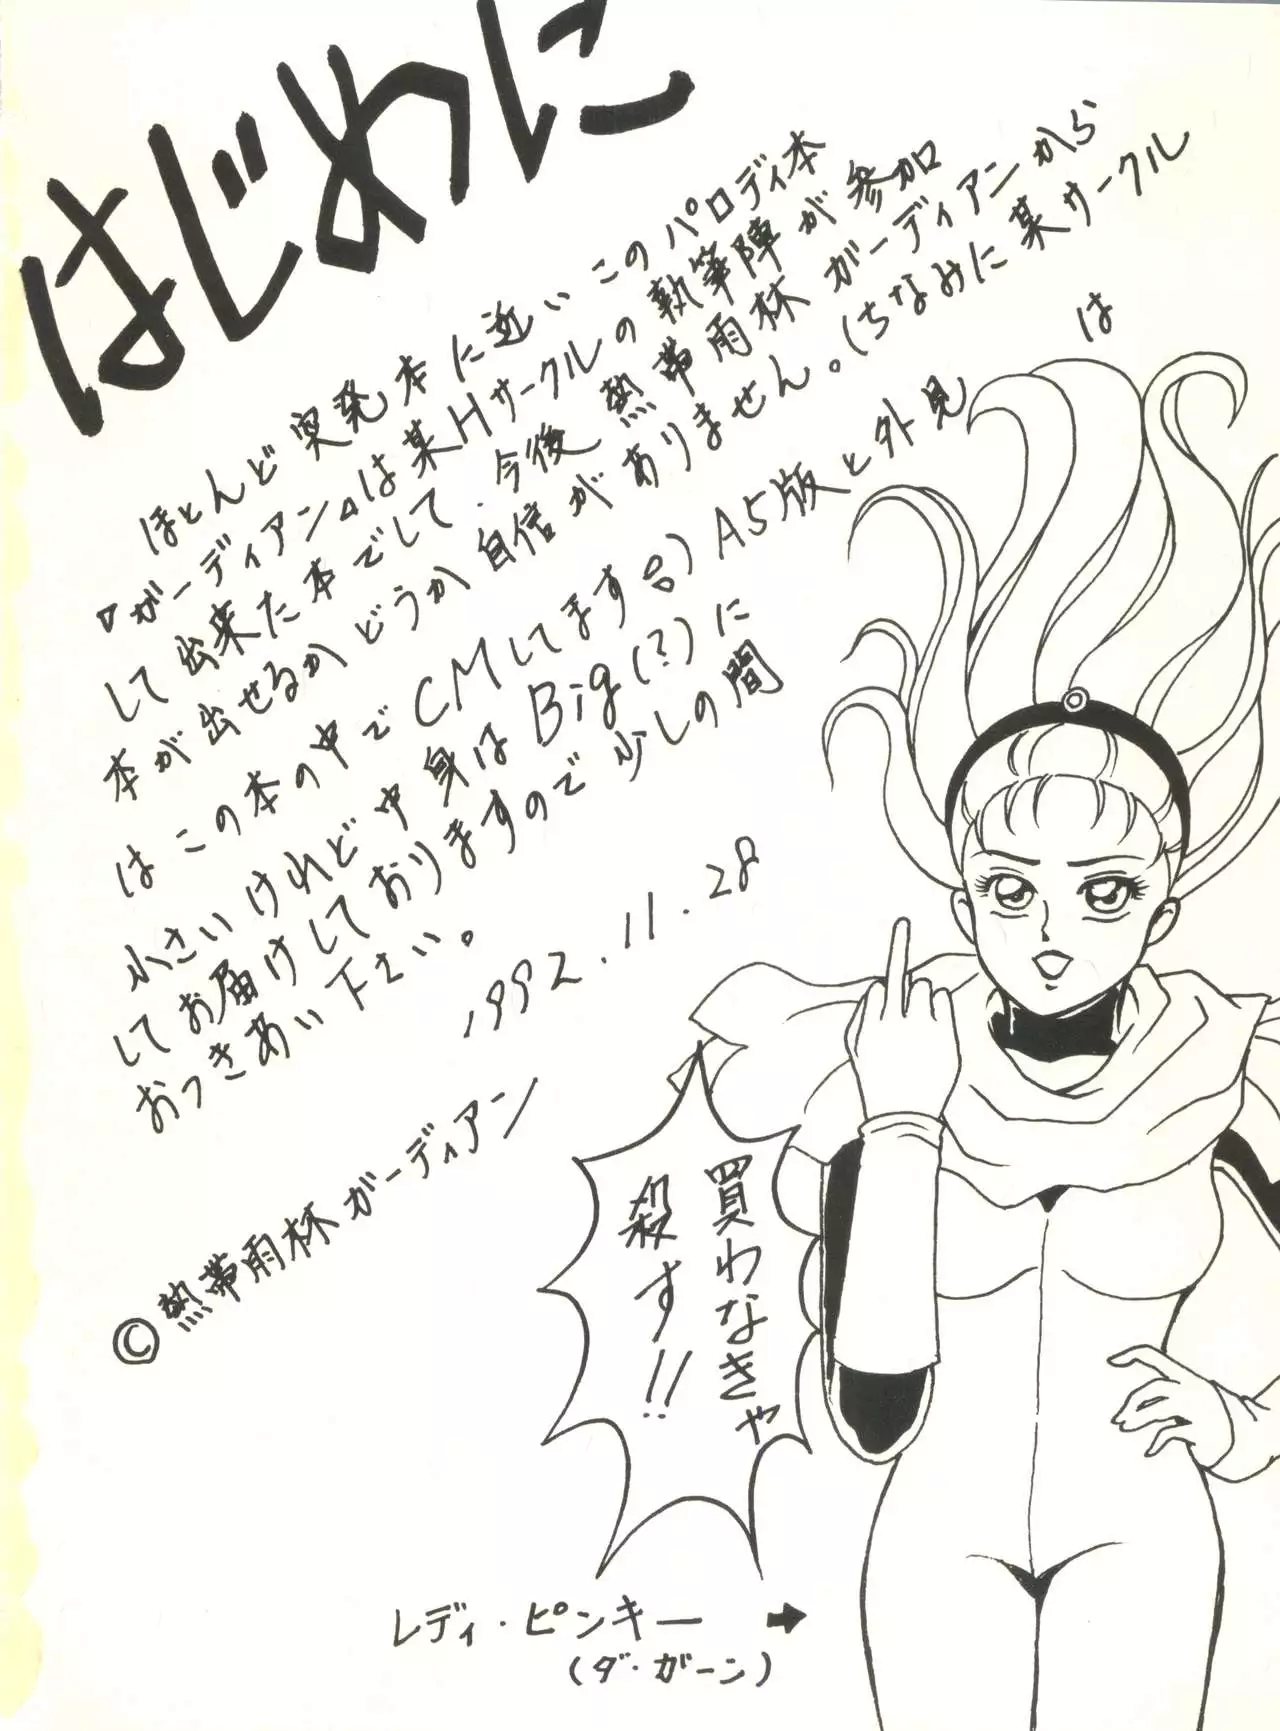 はじめに
ほとんど突発本に近いこのパロディ本
『ガーディアン』は某Hサークルの執筆陣が参加
して出来た本でして、今後熱帯雨林ガーディアンから
本が出せるかどうか自信がありません。(ちなみに某サークル
は
はこの本の中でCMしてます)A5版と外見
小さいけれど中身はBig(?)に
してお届けしておりますので少しの間
おつきあい下さい。
1992.11.28
©熱帯雨林ガーディアン
買わなきゃ
殺す!!
レディ・ピンキー →
(ダ・ガーン)